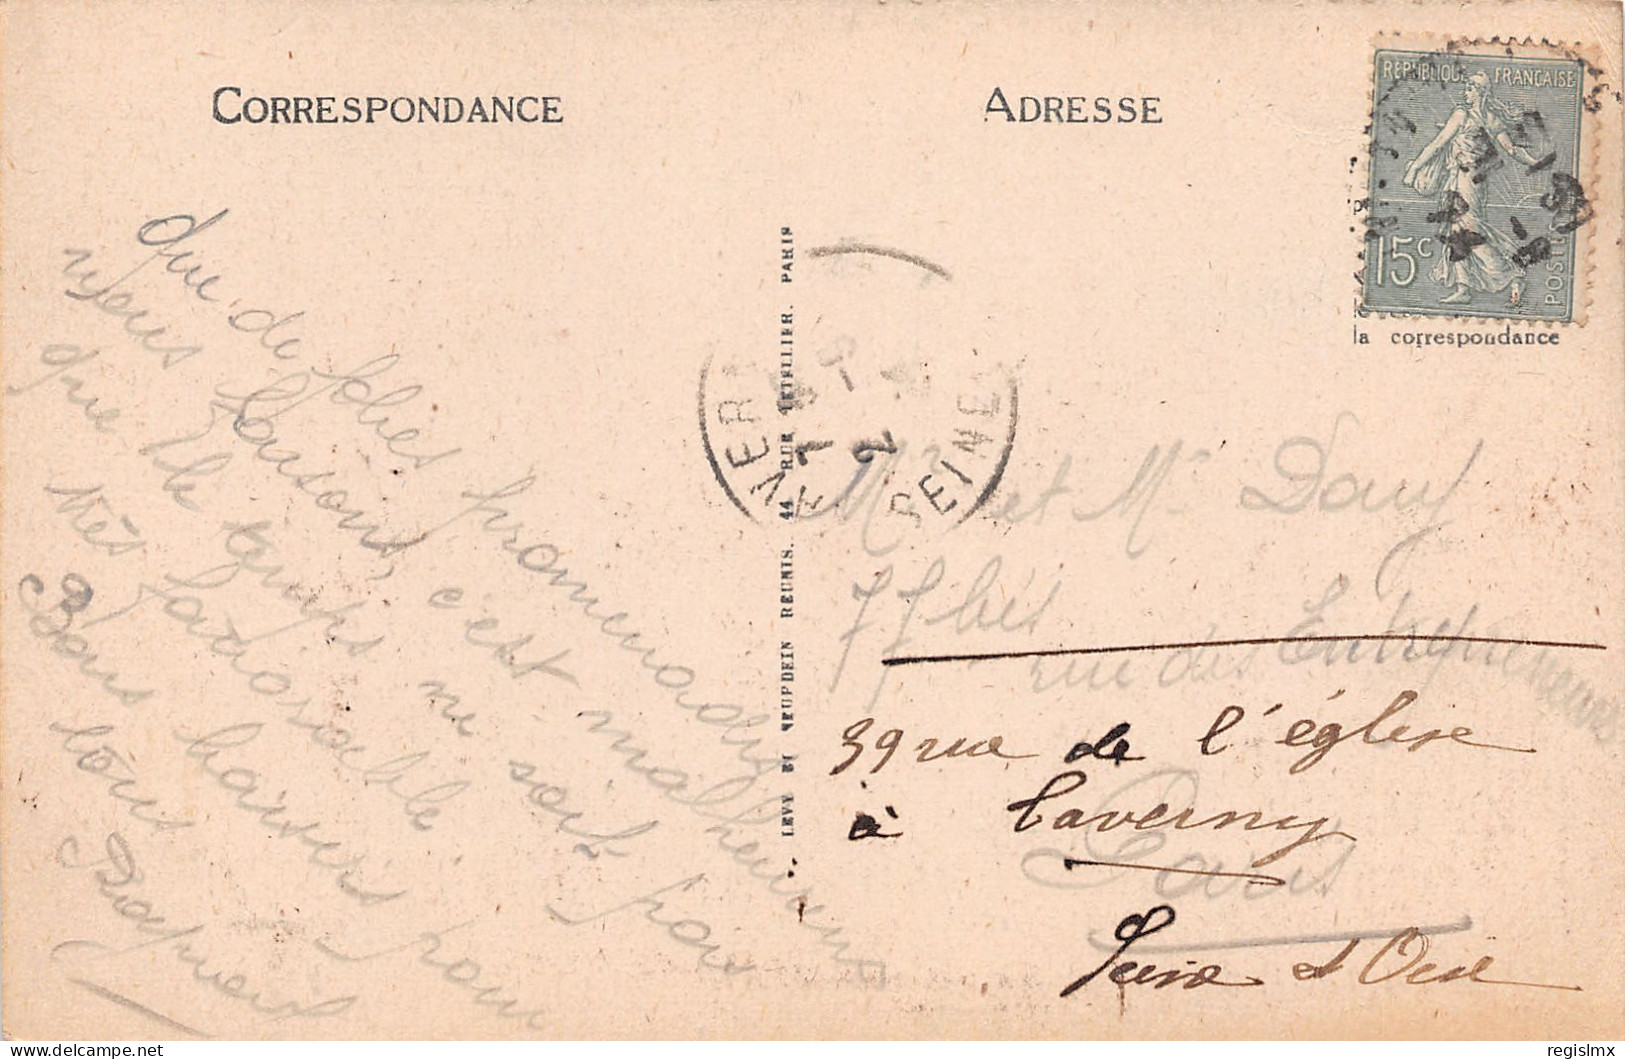 CORRESPONDANCE
que de jolies promenades
nous faisons, c'est malheureux
que le temps ne soit pas
très favorable
Bons baisers pour
tous
LEVY ET NEURDEIN REUNIS. 44 RUE LETELLIER. PARIS
ADRESSE
REPUBLIQUE FRANÇAISE
15c
POSTES
la correspondance
SEINE
Mr et Me Dauf
77 bis
rue des Entrepreneurs
39 rue de l'église
à Taverny
Paris
Seine et Oise
regislmx
© delcampe.net